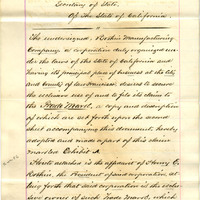 Secretary of State,
Of the State of California.
The undersigned, Bothin Manufacturing
Company, a corporation duly organized under
the laws of the State of California and
having its principal place of business at the City
and County of San Francisco, desires to secure
the exclusive use of and to file its claim to
the Trade Mark, a copy and description
of which are set forth upon the second
sheet accompanying this document, hereby
adopted and made a part of this claim
marked Exhibit A.
Hereto attached is the affidavit of Henry E.
Bothin, the President of said corporation set
ting forth that said corporation is the exclu
sive owner of such Trade Mark, which